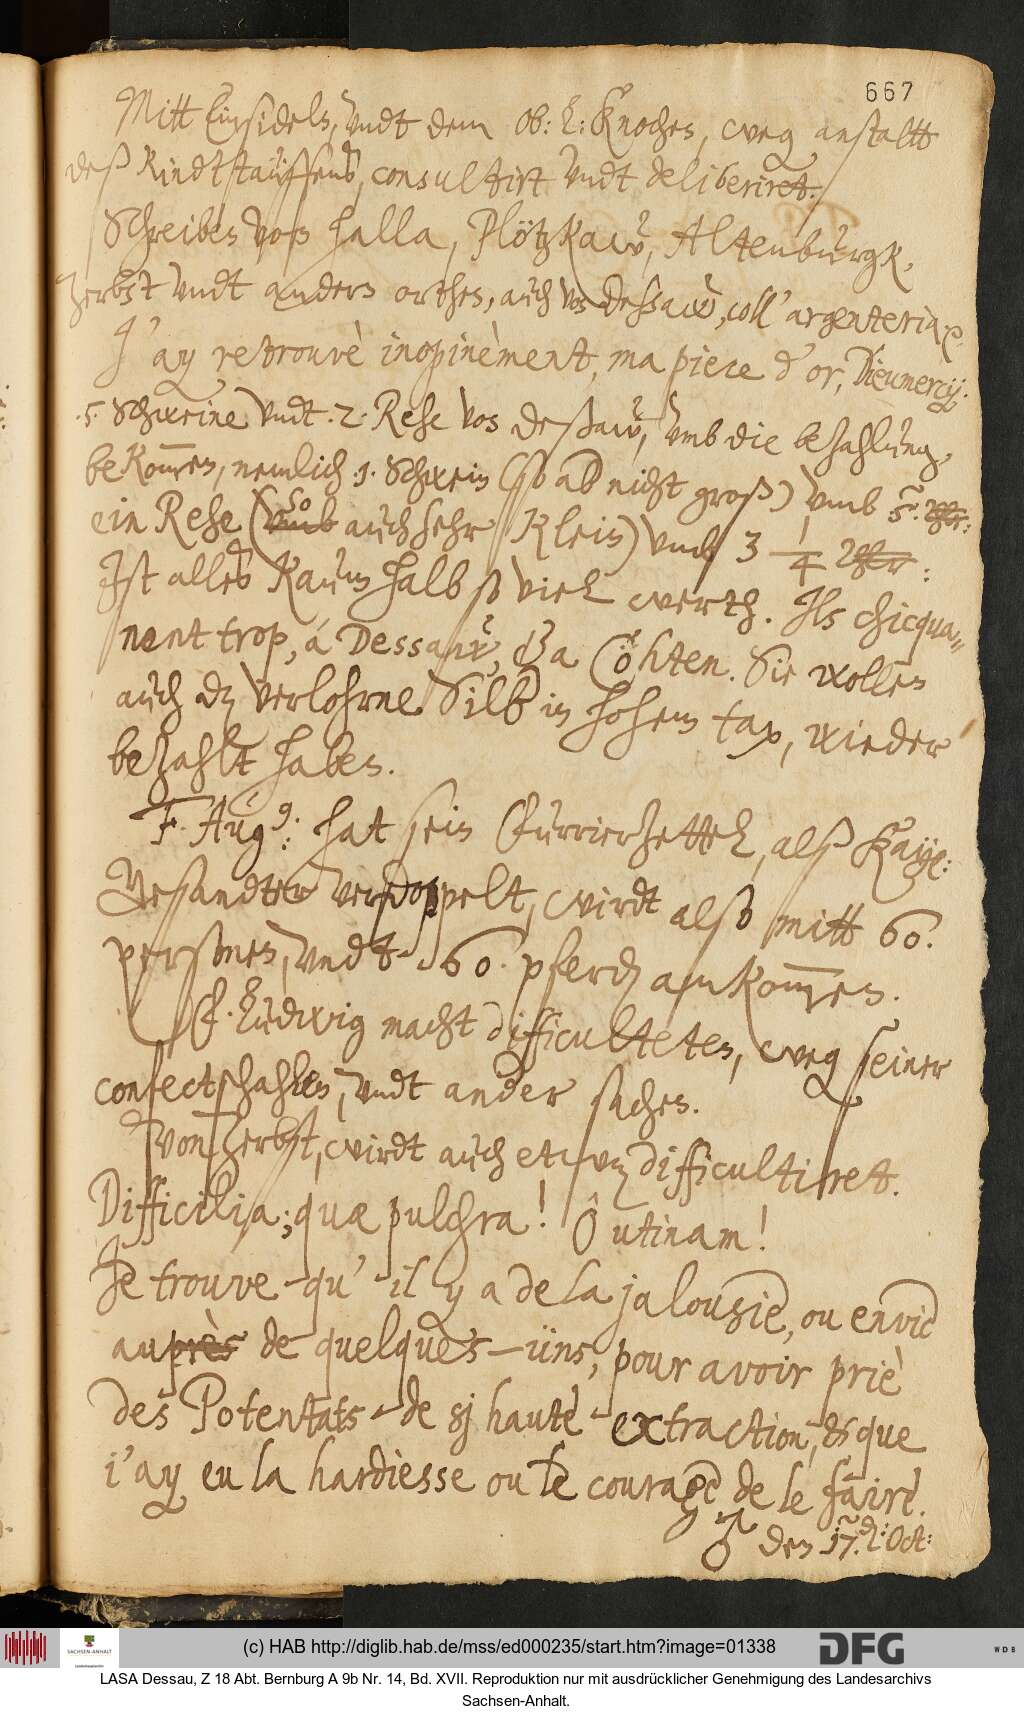 667
Mitt Einsidelն, vndt dem Ob: L: Knochen, weg anstaltt
deß Kindtstäuffens, consultirt vndt deliberiret.
Schreiben von Halla, Plötzkaw, Altenburgk,
Zerbst vndt andern orthen, auch von Deßaw, coll' argenteria &c.
J'ay retrouvè inopinèment, ma piece d'or, Dieumercy.
.5. Schweine vndt .2. Rehe von Deßaw, vmb die bezahlung,
bekommen, nemlich .1. Schwein (so ab nicht groß) vmb 5. Thlr:
ein Rehe (vmb so auch sehr klein) vmb 3 1/4 Thlr:
Ist alles kaum halb so viel werth. Ils chicqua=
nent trop, á Dessaw, & a Cöhten. Sie wollen
auch dz verlohrne Silb in hohem tax, wieder
bezahlt haben.
F. Aug9: hat sein Furrierzettel, alß Kay:
Gesandter verdoppelt, wirdt also mitt 60.
personen, vndt 60. pferden ankommen.
F. Ludwig macht difficulteten, weg seiner
confectschahlen, vndt ander sachen.
von Zerbst, wirdt auch etwz difficultiret.
Difficilia; quæ pulchra! Ô utinam!
Je trouve qu'il y a de la jalousie, ou envie
auprès de quelques-üns, pour avoir priè
des Potentats de sj haute extraction, & que
i'ay eu la hardiesse ou le courage de le faire.
♂ den 17. d: Oct:
(c) HAB http://diglib.hab.de/mss/ed000235/start.htm?image=01338
SACHSEN-ANHALT
DFG
WDB
LASA Dessau, Z 18 Abt. Bernburg A 9b Nr. 14, Bd. XVII. Reproduktion nur mit ausdrücklicher Genehmigung des Landesarchivs
Sachsen-Anhalt.